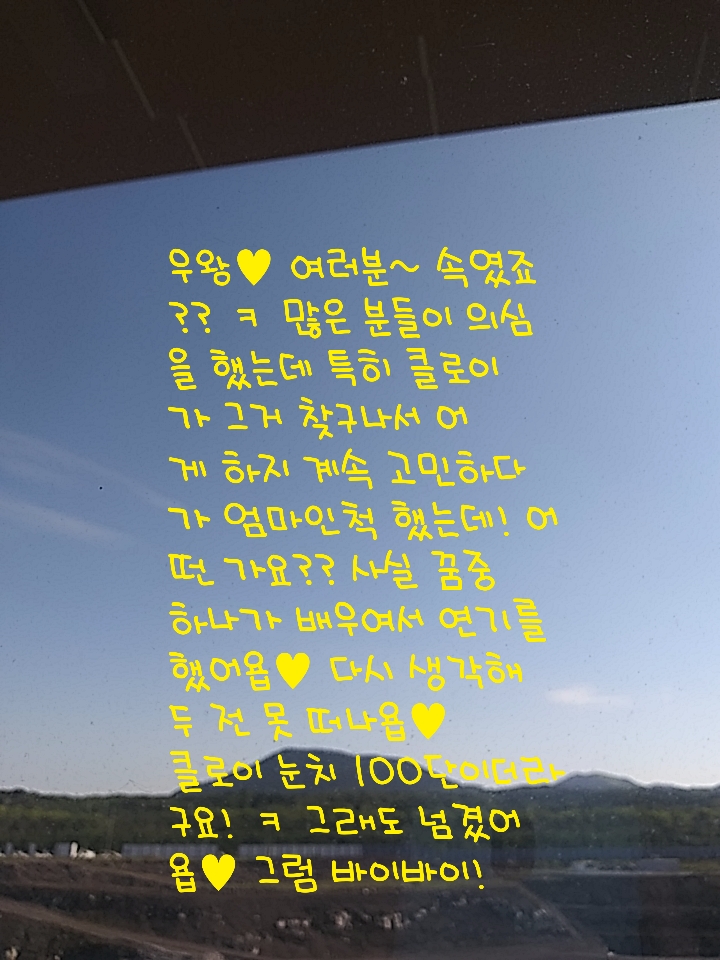 우왕♥ 여러분~ 속였죠
?? ㅋ 많은 분들이 의심
을 했는데 특히 클로이
가 그거 찾구나서 어
게 하지 계속 고민하다
가 엄마인척 했는데! 어
떤 가요?? 사실 꿈중
하나가 배우여서 연기를
했어욥♥ 다시 생각해
두 전 못 떠나욥♥
클로이 눈치 100단이더라
구요! ㅋ 그래도 넘겼어
욥♥ 그럼 바이바이!